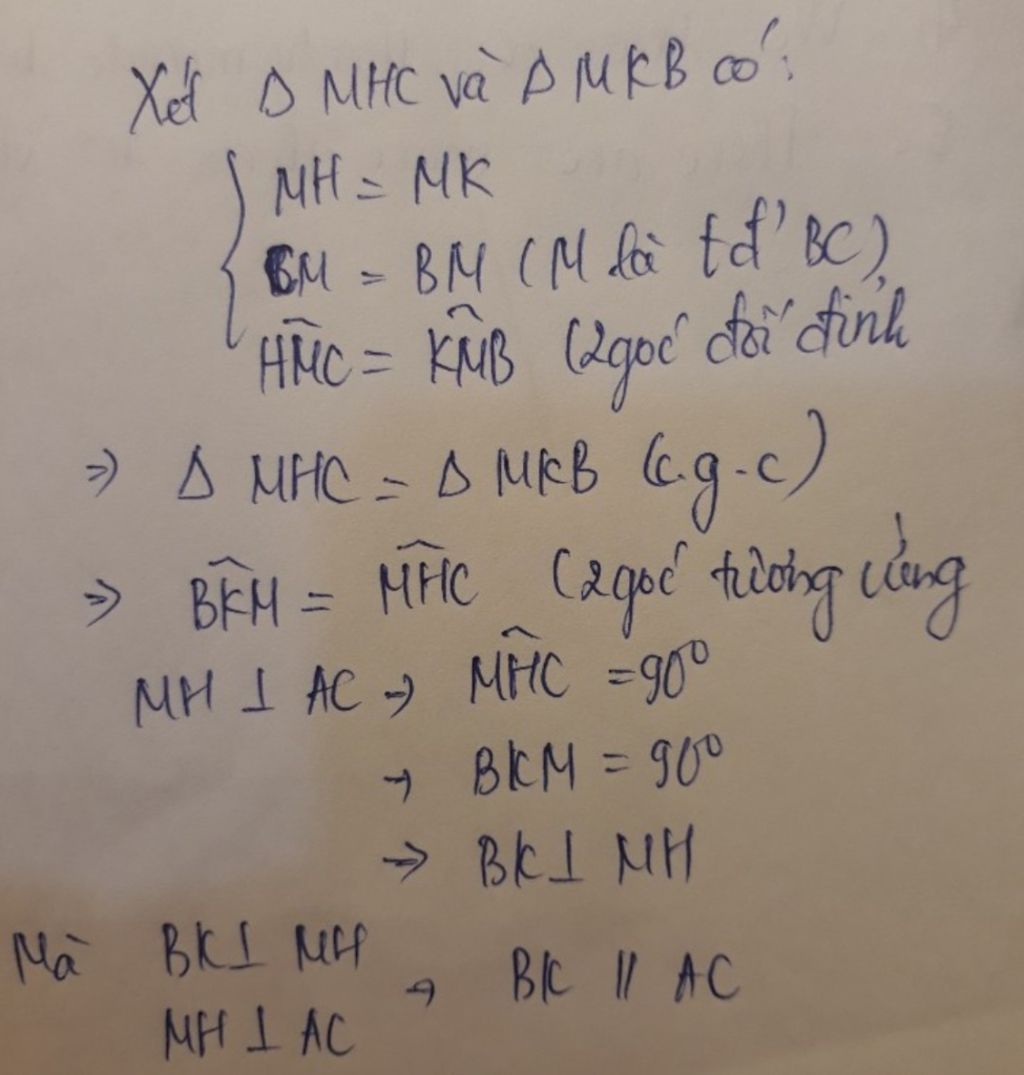 Xét Δ MHC và Δ MKB có:
MH = MK
CM = BM (M là tđ' BC)
HM̂C = KM̂B (2 góc đối đỉnh
=> Δ MHC = Δ MKB (c.g-c)
=> BK̂M = MĤC (2 góc tương ứng
MH ⊥ AC → MĤC = 90°
→ BKM = 90°
→ BK ⊥ MH
Mà BK ⊥ MH → BK // AC
MH ⊥ AC